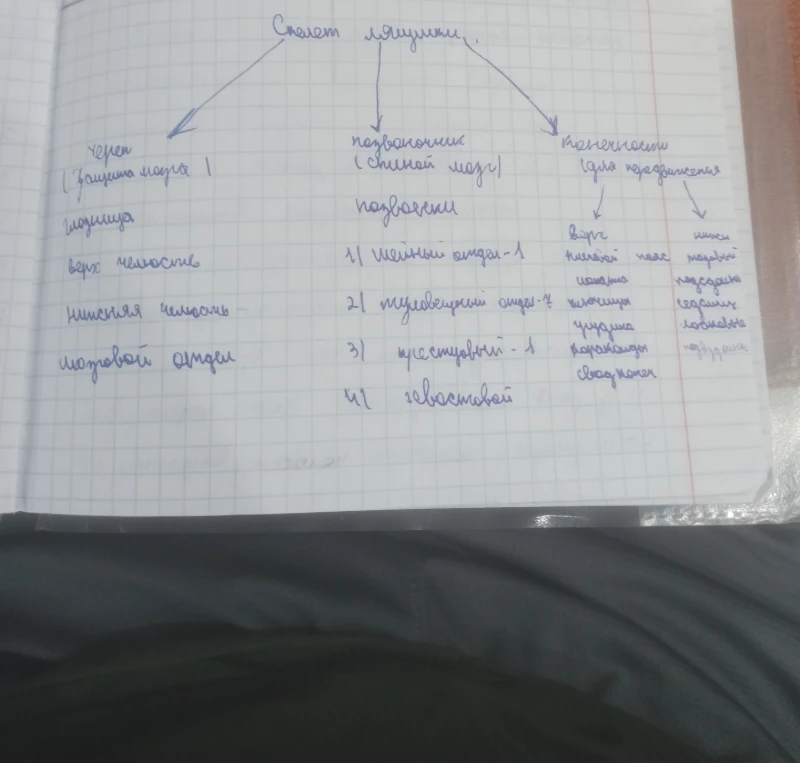 Скелет лягушки.
череп
(Защита мозга)
глазница
верх челюсть
нижняя челюсть
мозговой отдел
позвоночник
(спиной мозг)
позвонки
1) шейный отдел-1
2) туловещный отдел-7
3) крестцовый-1
4) хвостовой
Конечности
(для передвижения
верх
плечевой пояс
лопатка
ключицы
грудина
коракоиды
свод конеч
нижн
тазовый
седалищ
лобковые